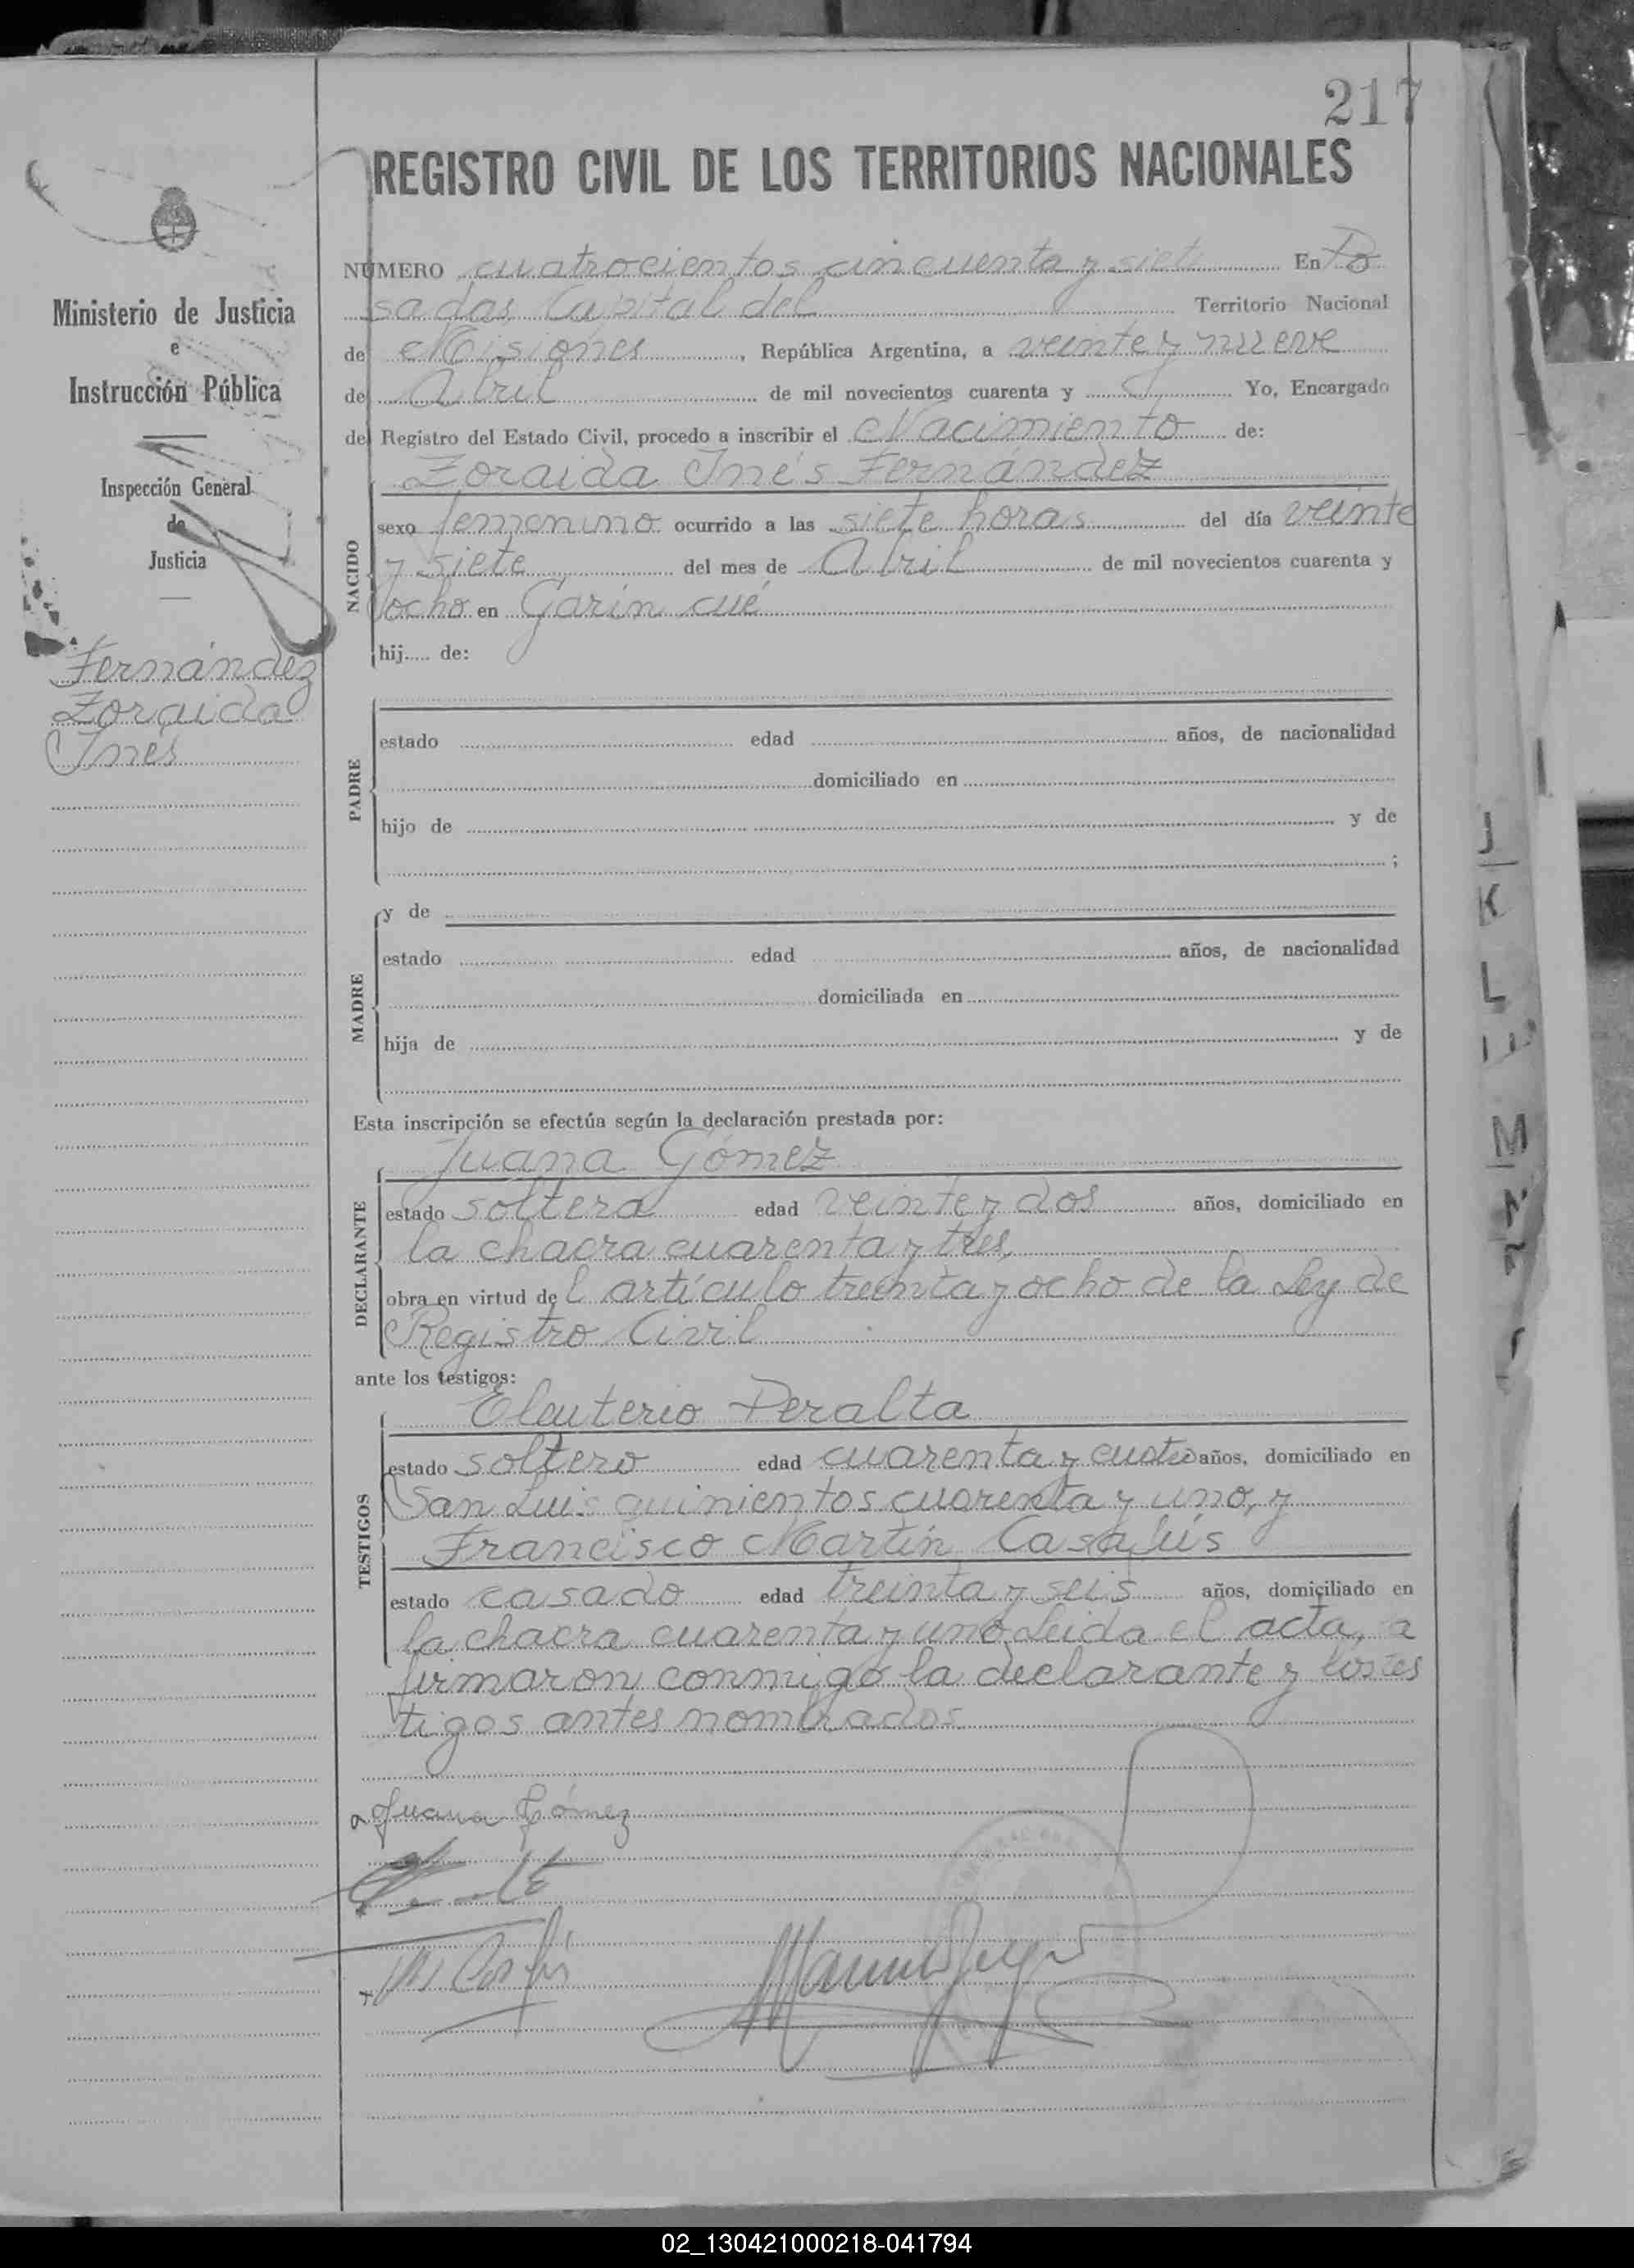 217
REGISTRO CIVIL DE LOS TERRITORIOS NACIONALES
Ministerio de Justicia
e
Instrucción Pública
Inspección General
de
Justicia
Fernández
Zoraida
Inés
NÚMERO cuatrocientos cincuenta y siete En Po
sadas Capital del Territorio Nacional
de Misiones, República Argentina, a veinte y nueve
de Abril de mil novecientos cuarenta y Yo, Encargado
del Registro del Estado Civil, procedo a inscribir el Nacimiento de:
Zoraida Inés Fernández
NACIDO
sexo femenino ocurrido a las siete horas del día veinte
y siete del mes de Abril de mil novecientos cuarenta y
ocho en Garín cué
hij..... de:
PADRE
estado edad años, de nacionalidad
domiciliado en
hijo de y de
;
MADRE
y de
estado edad años, de nacionalidad
domiciliada en
hija de y de
Esta inscripción se efectúa según la declaración prestada por:
Juana Gómez
DECLARANTE
estado soltera edad veinte y dos años, domiciliado en
la chacra cuarenta y tres,
obra en virtud del artículo treinta y ocho de la Ley de
Registro Civil
ante los testigos:
Eleuterio Peralta
TESTIGOS
estado soltero edad cuarenta y cuatro años, domiciliado en
San Luis quinientos cuarenta y uno, y
Francisco Martín Casafús
estado casado edad treinta y seis años, domiciliado en
la chacra cuarenta y uno. Leida el acta, a
firmaron conmigo la declarante y los tes
tigos antes nombrados
Juana Gómez
J
K
L
M
N
02_130421000218-041794